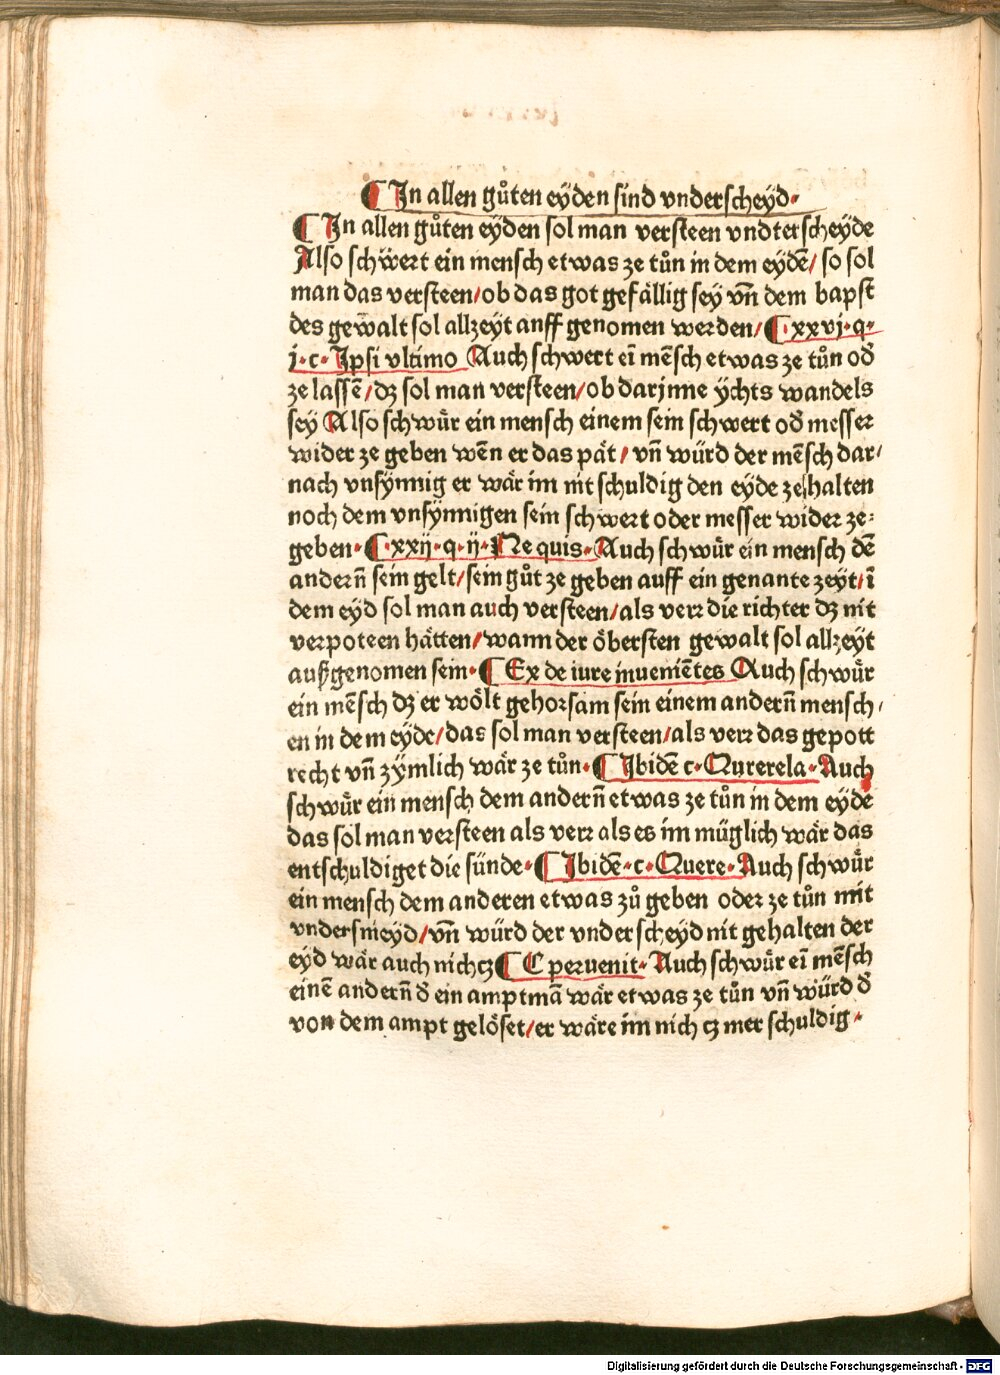 ¶ In allen gůten eÿden sind vnderscheÿd·
¶ In allen gůten eÿden sol man versteen vndterscheÿde
Also schwert ein mensch etwas ze tůn in dem eÿdē/ so sol
man das versteen/ob das got gefällig seÿ vn̄ dem bapst
des gewalt sol allzeÿt anff genomen werden/ ¶·xxvj·q·
j·c·Ipsi vltimo Auch schwert eī mēsch etwas ze tůn od̄
ze lassē/dz sol man versteen/ob darjnne ÿchts wandels
seÿ Also schwůr ein mensch einem sein schwert od̄ messer
wider ze geben wēn er das pät/ vn̄ würd der mēsch dar/
nach vnsÿnnig er wär im nit schuldig den eÿde ze halten
noch dem vnsÿnnigen sein schwert oder messer wider ze⸗
geben·¶·xxij·q·ij·Ne quis·Auch schwůr ein mensch dē
andern̄ sein gelt/sein gůt ze geben auff ein genante zeÿt/ī
dem eÿd sol man auch versteen/als verr die richter dz nit
verpoteen hätten/wann der öbersten gewalt sol allzeÿt
außgenomen sein·¶ Ex de iure inuemētes Auch schwůr
ein mēsch dz er wölt gehorsam sein einem andern̄ mensch/
en in dem eÿde/das sol man versteen/als verr das gepott
recht vn̄ zÿmlich wär ze tůn·¶ Ibidē c·Qurerela·Auch
schwůr ein mensch dem andern̄ etwas ze tůn in dem eÿde
das sol man versteen als verr als es im müglich wär das
entschuldiget die sünde·¶ Ibidē·c·Quere·Auch schwůr
ein mensch dem anderen etwas zů geben oder ze tůn mit
vndersmeÿd/vn̄ würd der vnderscheÿd nit gehalten der
eÿd wär auch nichcz ¶ C peruenit·Auch schwůr eī mēsch
einē andern̄ d̄ ein amptmā wär etwas ze tůn vn̄ würd d̄
von dem ampt gelöset/er wäre im nichcz mer schuldig·
Digitalisierung gefördert durch die Deutsche Forschungsgemeinschaft - DFG